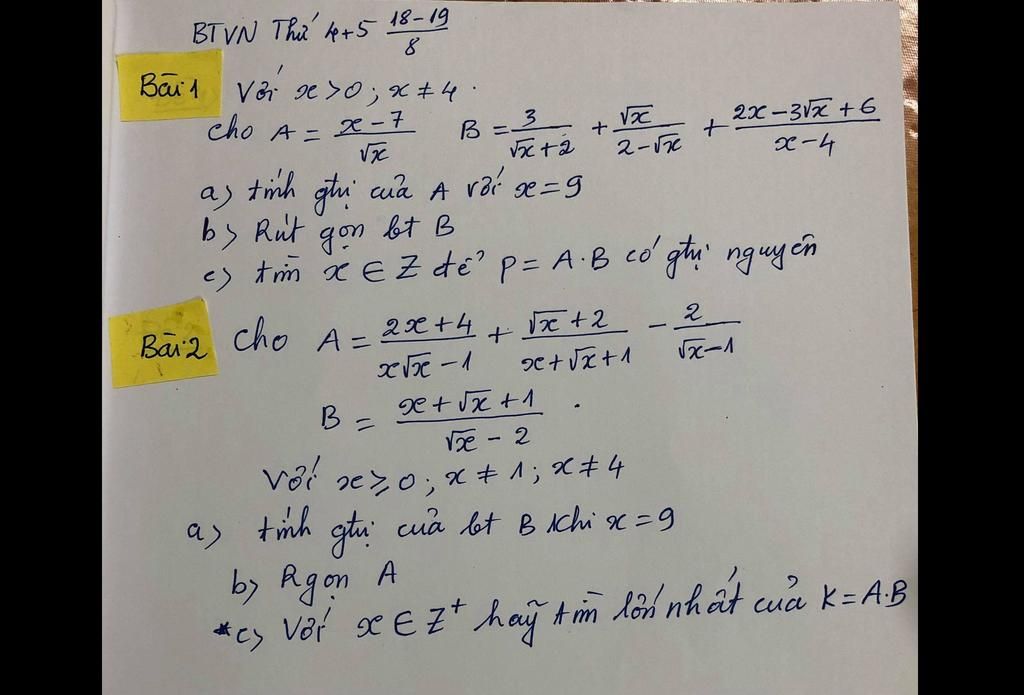 BTVN Thứ 4+5 18-19/8
Bài 1 Với x > 0; x ≠ 4.
Cho A = (x-7)/√x B = 3/(√x+2) + √x/(2-√x) + (2x-3√x+6)/(x-4)
a) tính gtrị của A với x = 9
b) Rút gọn bt B
c) tìm x ∈ Z để P = A·B có gtrị nguyên
Bài 2 Cho A = (2x+4)/(x√x-1) + (√x+2)/(x+√x+1) - 2/(√x-1)
B = (x+√x+1)/(√x-2) .
Với x ≥ 0; x ≠ 1; x ≠ 4
a) tính gtrị của bt B khi x = 9
b) Rgọn A
*c) Với x ∈ Z⁺ hãy tìm lớn nhất của K = A·B